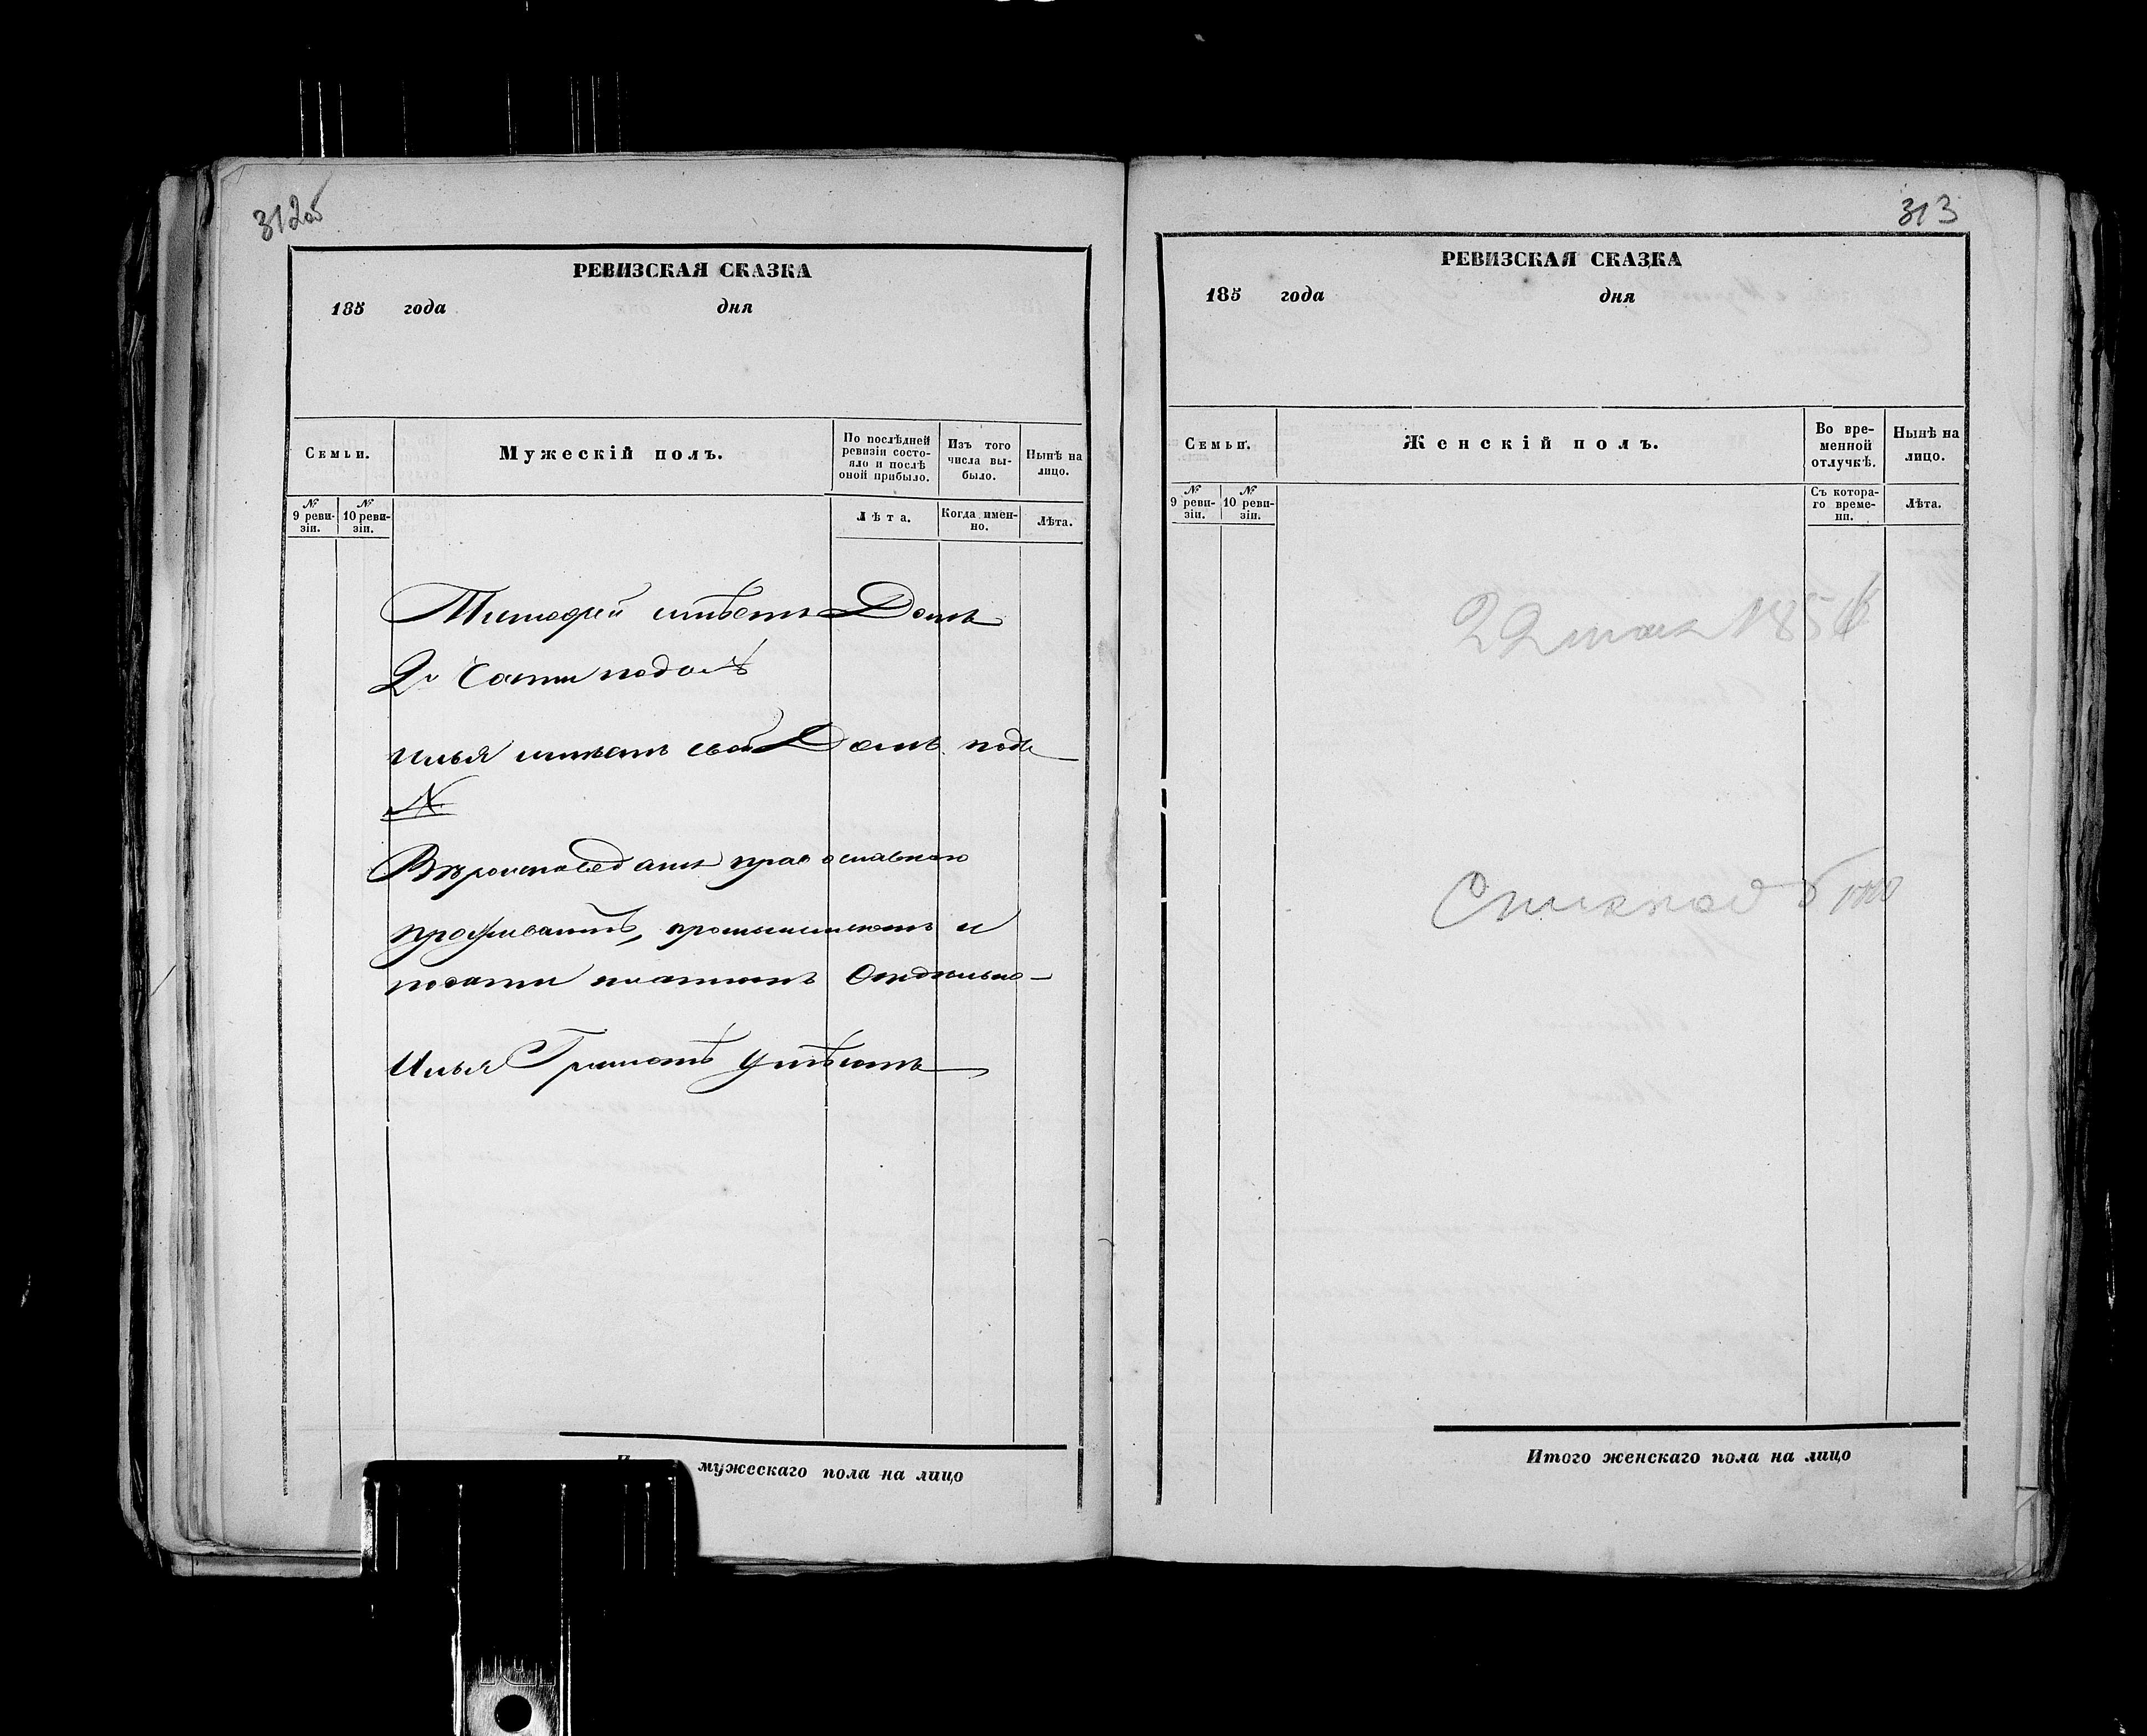 312об
РЕВИЗСКАЯ СКАЗКА
185 года дня
Семьи.
Мужескій полъ.
По послѣдней ревизіи состо-
яло и послѣ
оной прибыло.
Изъ того
числа вы-
было.
Нынѣ на
лицо.
№
9 реви-
зіи.
№
10 реви-
зіи.
Лѣта.
Когда имен-
но.
Лѣта.
Тимофей имѣетъ Домъ
2й Части под №
Илья имѣетъ свой Домъ подъ
№
Вѣроисповеданія православнаго
проживаютъ, промышляютъ и
подати платютъ Отдѣльно
Илья Грамотѣ Умѣетъ
мужескаго пола на лицо
313
РЕВИЗСКАЯ СКАЗКА
185 года дня
Семьи.
Женскій полъ.
Во вре-
менной
отлучкѣ.
Нынѣ на
лицо.
№
9 реви-
зіи.
№
10 реви-
зіи.
Съ котора-
го време-
ни.
Лѣта.
22 мая 185
Итого женскаго пола на лицо